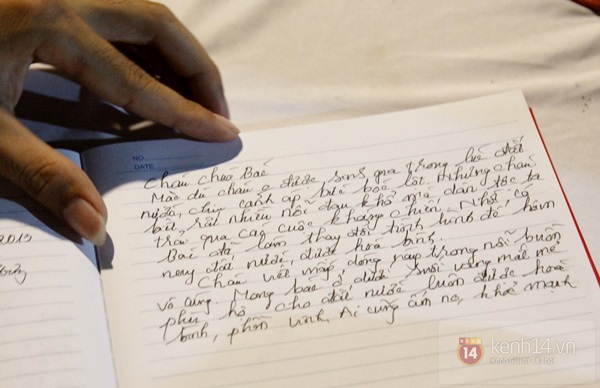 NO.
DATE
Cháu chào Bác
Mặc dù cháu o được sinh qua trong lúc đất
nước chịu cảnh áp bức bóc lột. Nhưng cháu
biết, rất nhiều nỗi đau khổ mà dân tộc ta
trải qua các cuộc kháng chiến. Nhờ có
Bác đã làm thay đổi tình hình để hôm
nay đất nước được hoà bình.
Cháu viết mấy dòng này trong nỗi buồn
vô cùng. Mong bác ở dưới suối vàng mát mẻ
phù hộ cho đất nước luôn được hoà
bình, phồn vinh. Ai cũng ấm no, khoẻ mạnh
2013
14
kenh14.vn